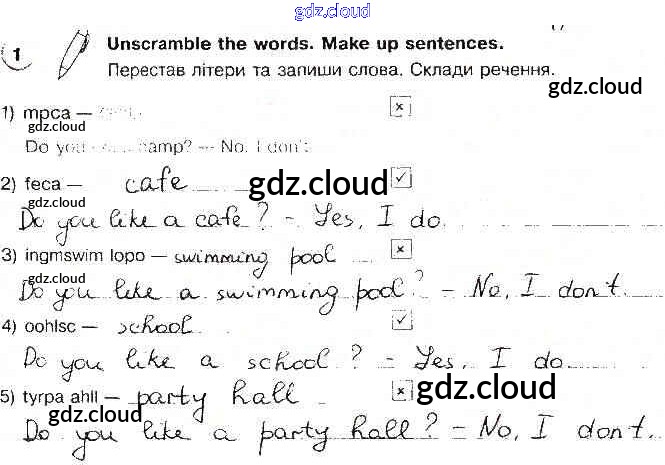 gdz.cloud
1
Unscramble the words. Make up sentences.
Перестав літери та запиши слова. Склади речення.
gdz.cloud
1) mpca — ×
gdz.cloud
Do you camp? – No, I don't
2) feca — cafe gdz.cloud ✓
gdz.cloud
Do you like a cafe? – Yes, I do.
3) ingmswim lopo — swimming pool ×
gdz.cloud
Do you like a swimming pool? – No, I don't.
4) oohlsc — school ✓
Do you like a school? – Yes, I do
5) tyrpa ahll — party hall × gdz.cloud
gdz.cloud
Do you like a party hall? – No, I don't.